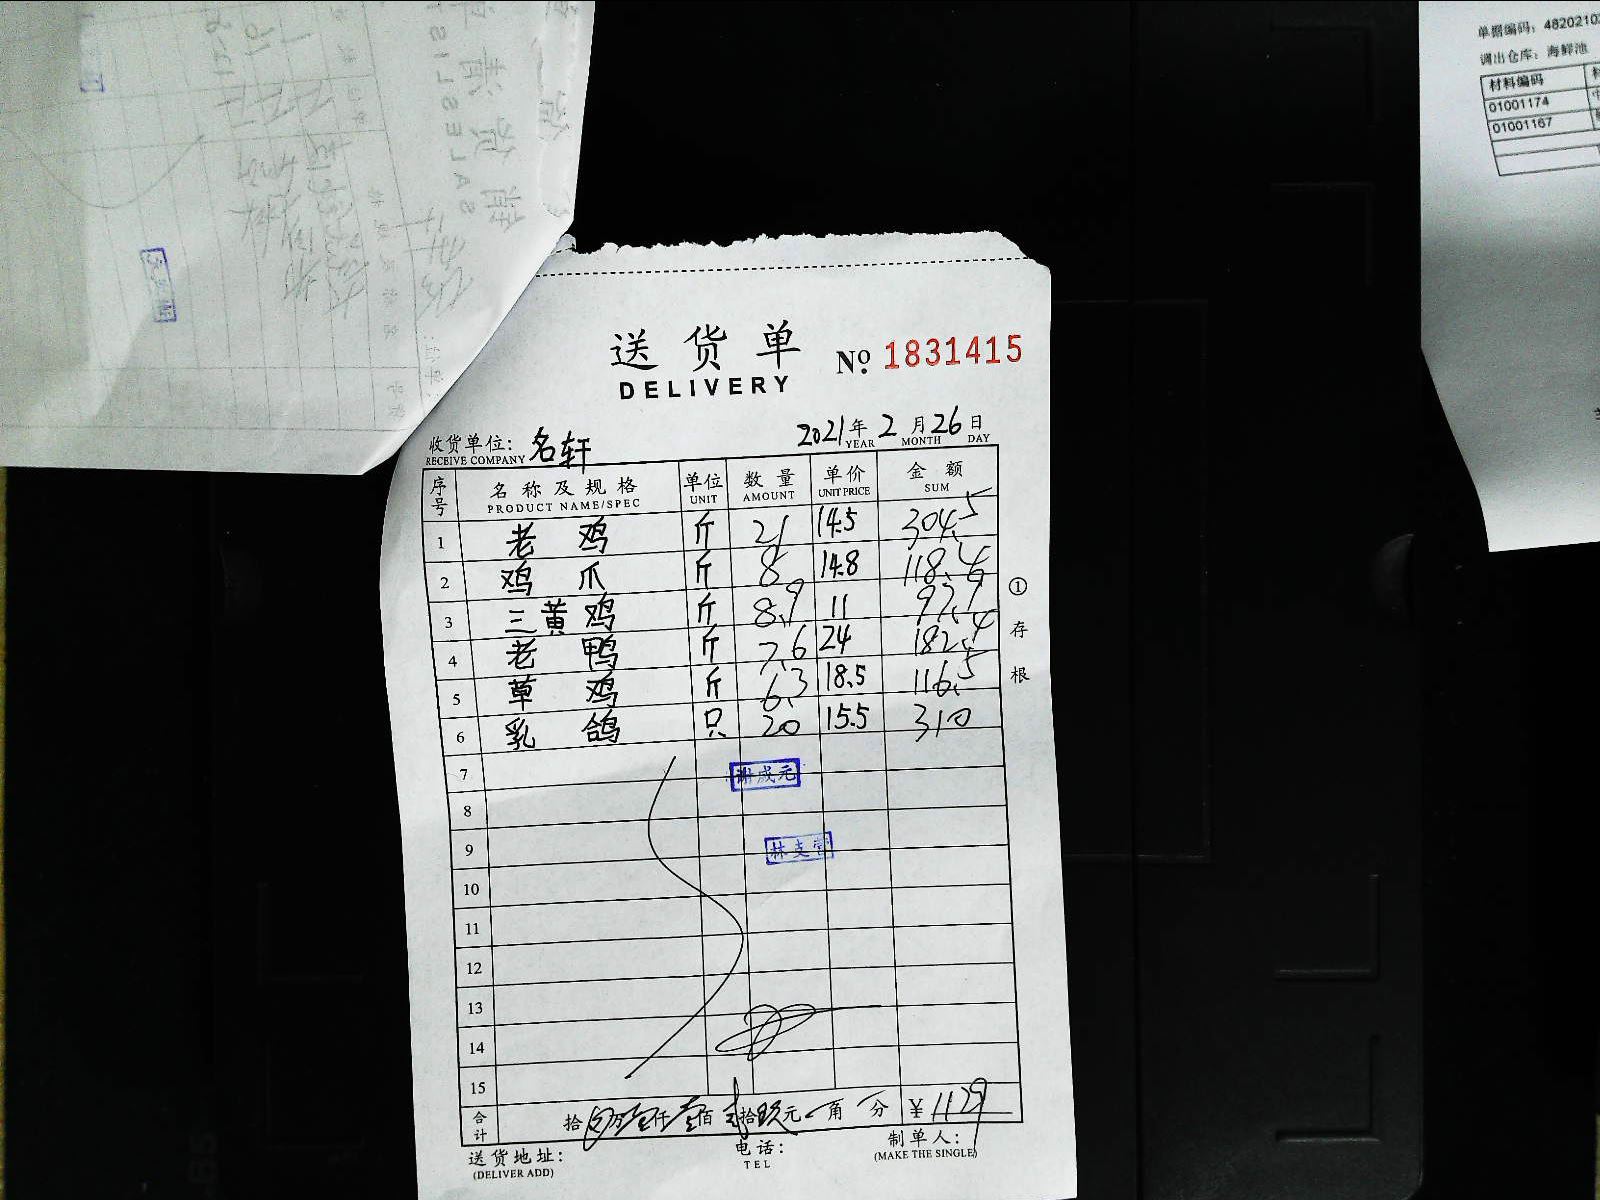 单据编码：4820210
调出仓库：海鲜池
材料编码
01001174
01001167
送货单 № 1831415
DELIVERY
2021年 2月 26日
YEAR MONTH DAY
收货单位：名轩
RECEIVE COMPANY
序号 名称及规格 单位 数量 单价 金额
PRODUCT NAME/SPEC UNIT AMOUNT UNIT PRICE SUM
1 老鸡 斤 21 14.5 304.5
2 鸡爪 斤 8 14.8 118.4
3 三黄鸡 斤 8.9 11 97.9
4 老鸭 斤 7.6 24 182.4
5 草鸡 斤 6.3 18.5 116.5
6 乳鸽 只 20 15.5 310
7
谢成元
8
9
林支营
10
11
12
13
14
15
合计 拾 万 仟壹佰贰拾玖元 角 分 ¥1129
①存根
送货地址： 电话： 制单人：
(DELIVER ADD) TEL (MAKE THE SINGLE)